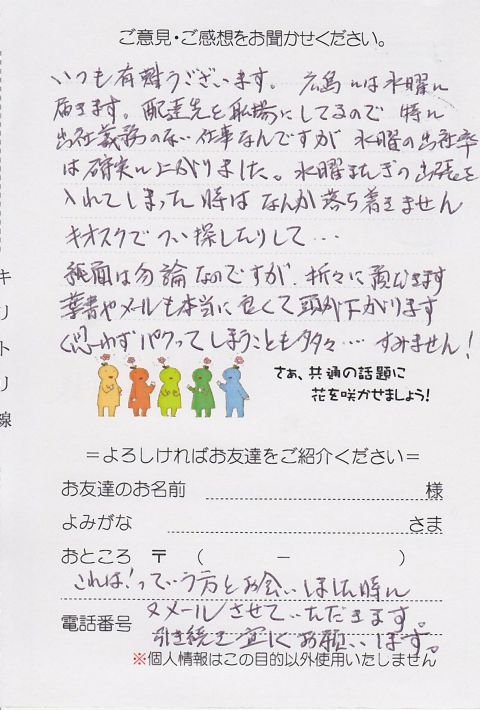 ご意見・ご感想をお聞かせください。
いつも有難うございます。 広島には水曜に
届きます。配達先を職場にしてるので 特に
出社義務のない仕事なんですが 水曜の出社率
は確実に上がりました。水曜またぎの出張を
入れてしまった時は なんか落ち着きません
キオスクで つい探したりして…
紙面は勿論なのですが、折々に頂きます
葉書やメールも本当に 頭が下がります
思わずパクってしまうことも多々… すみません!
さぁ、共通の話題に
花を咲かせましょう!
=よろしければお友達をご紹介ください=
お友達のお名前 様
よみがな さま
おところ 〒 ( − )
これは!っていう方とお会いしました時に
又メールさせていただきます。
電話番号
引き続き宜しくお願いします。
※個人情報はこの目的以外使用いたしません
キリトリ線